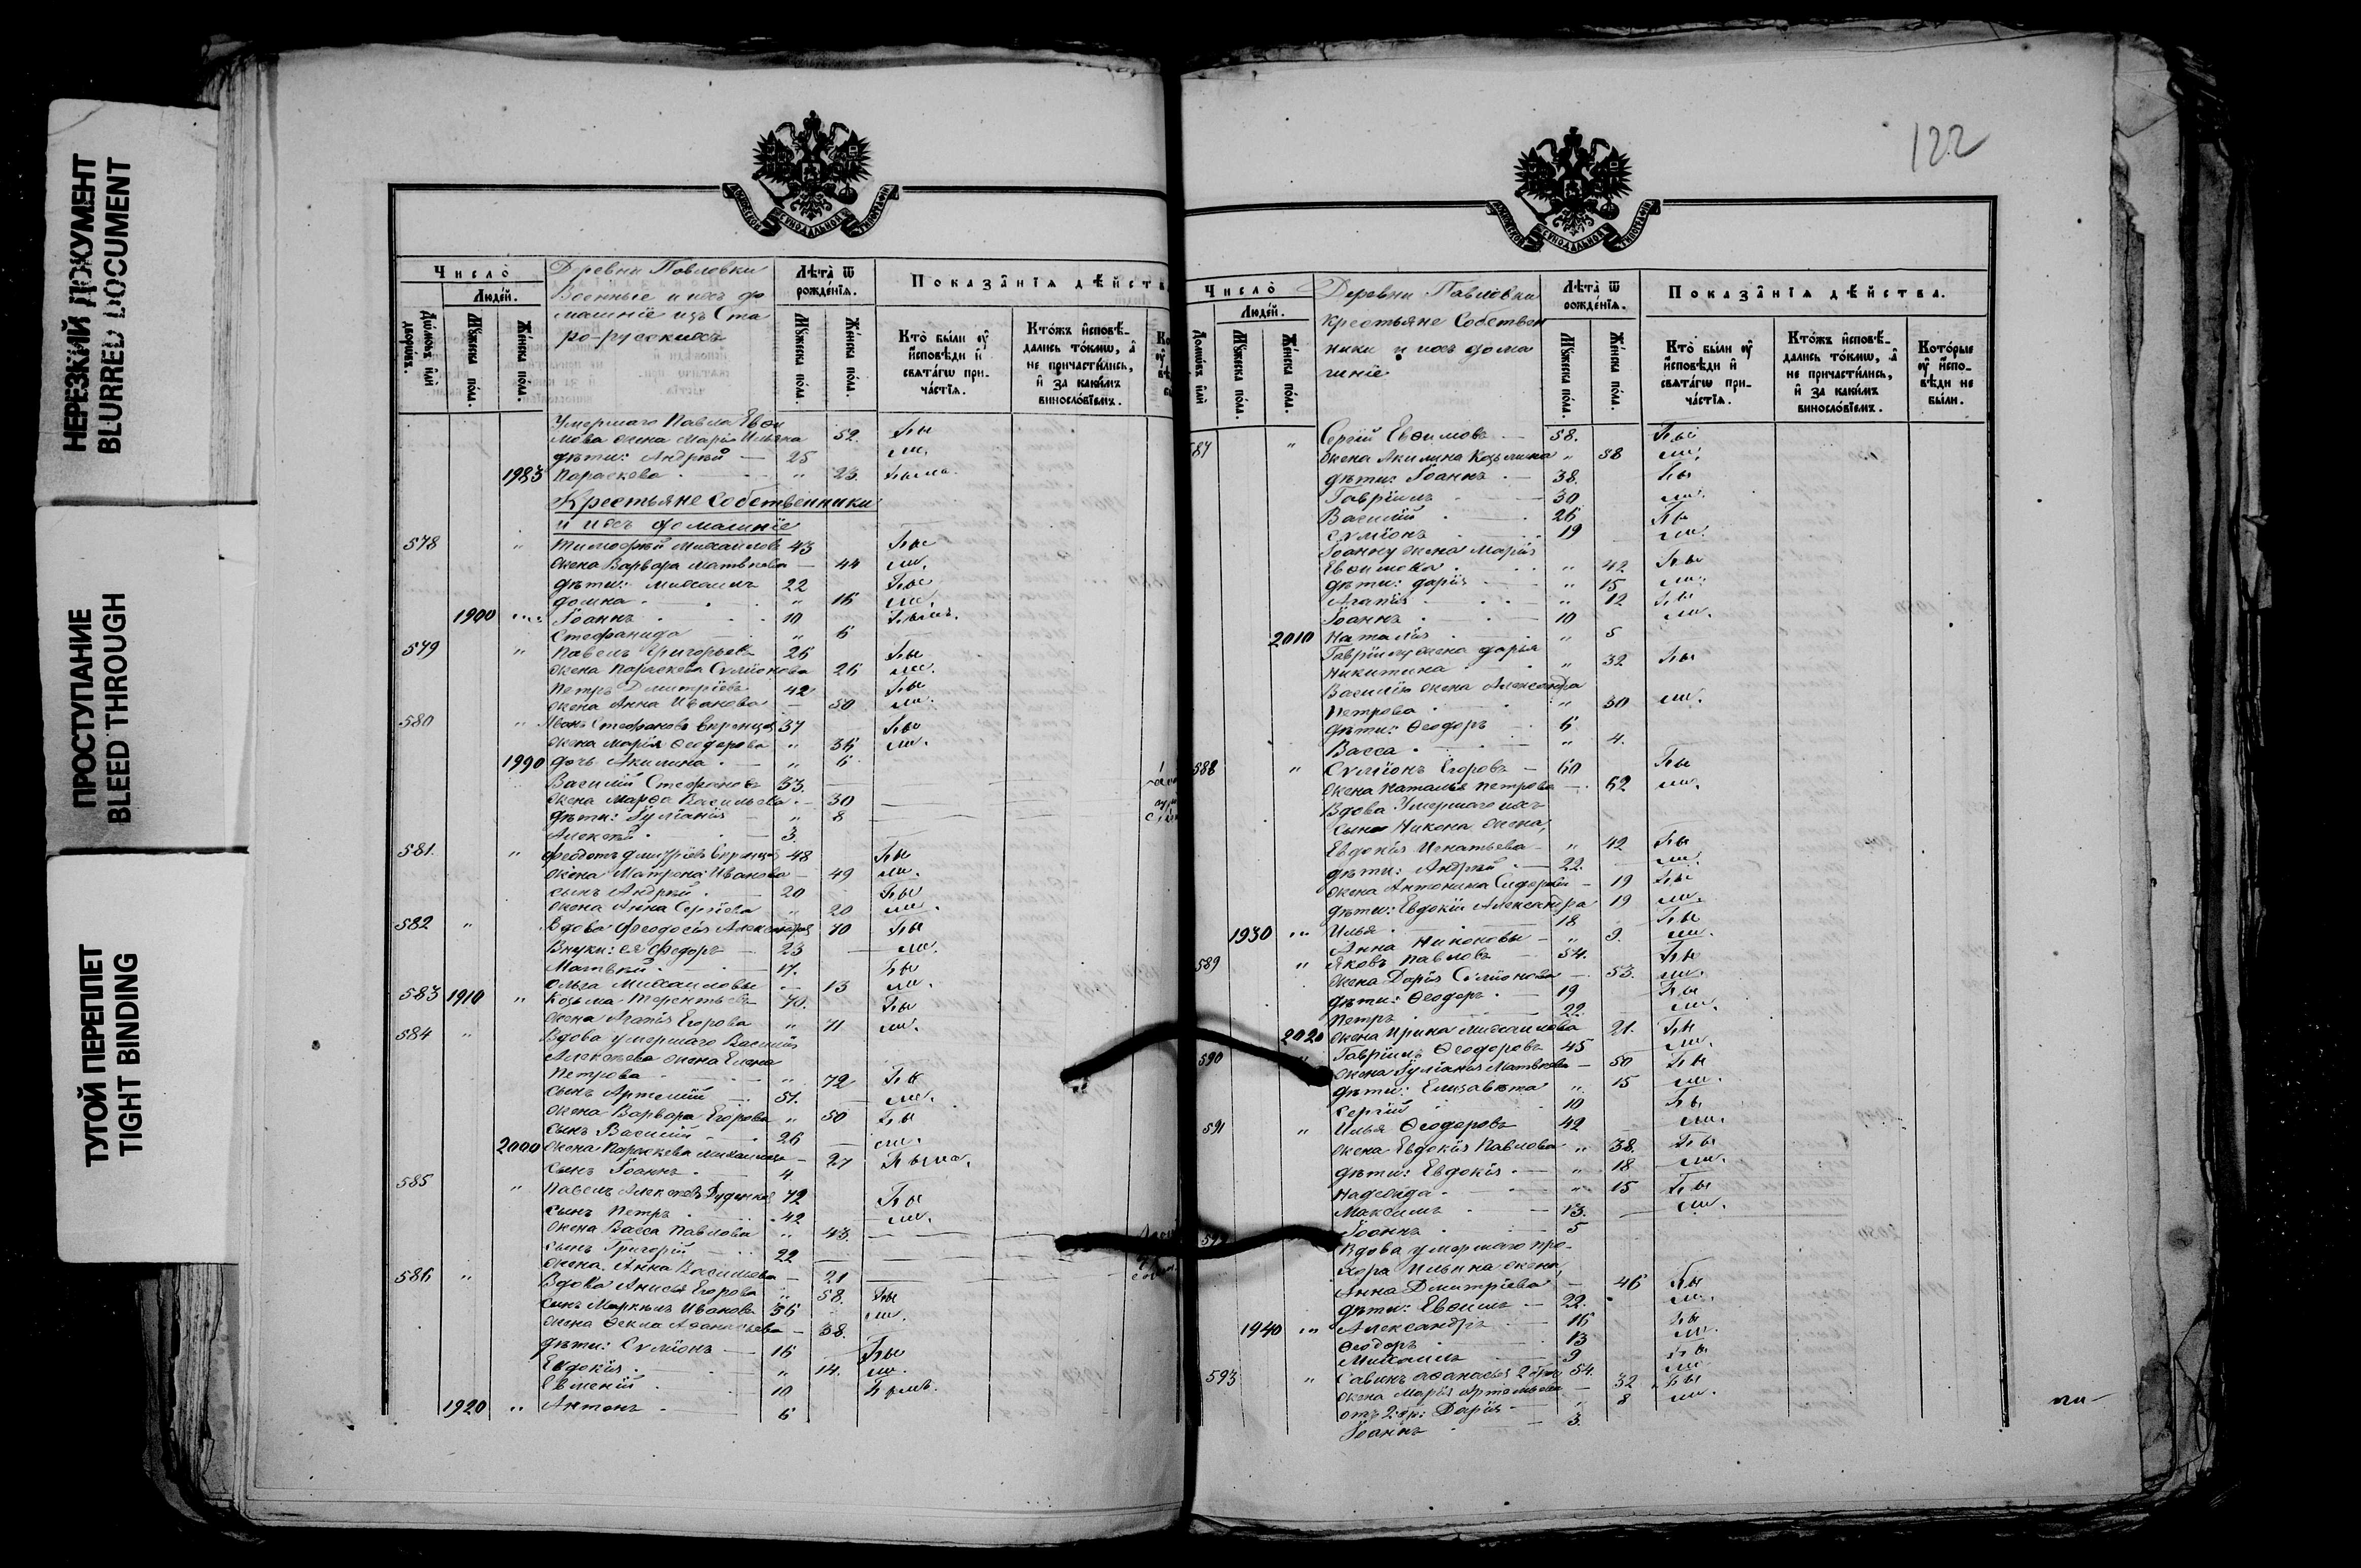 НЕРЕЗКИЙ ДОКУМЕНТ
BLURRED DOCUMENT
ПРОСТУПАНИЕ
BLEED THROUGH
ТУГОЙ ПЕРЕПЛЕТ
TIGHT BINDING
Число̀
Людей.
Домовъ или дворовъ.
Мужеска пола.
Женска пола.
Деревни Павловки
Военные и ихъ до
машніе изъ Ста
ро-русскихъ
Лѣта̀ ѿ рожде́нїѧ.
Мужеска пола.
Женска пола.
Показа̑нїѧ дѣйств
Кто̀ были оу҆ и҆сповѣди и҆ свѧта́гѡ при-ча́стїѧ.
Кто́жъ и҆сповѣ-дались то́кмѡ, а҆ не причасти́лись, и҆ за каки́мъ винословїемъ.
Умершаго Павла Евѳи
мова жена Марія Ильина 52. Бы
дѣти: Андрей — 25 ли.
1983 Параскева " 23. Была.
Крестьяне Собственники
и ихъ домашніе
578 " Тимоѳей Михаиловъ 43 Бы
жена Варвара Матѳеева — 44 ли.
дѣти: Михаилъ 22 Бы
Домна " 16 ли.
1900 Іоаннъ 10 Былъ.
Стефанида " 6
579 " Павелъ Григорьевъ 26 Бы
жена Параскева Сумеонова 26 ли.
Петръ Дмитріевъ 42 Бы
жена Анна Иванова — 50 ли.
580 " Стефановъ 37 Бы
жена Марія Ѳеодорова " 36 ли.
1990 дочь Акилина " 6
Василій Стефановъ 33.
жена Марѳа Васильева — 30
дѣти: Іуліанія " 8
Алексѣй 3.
581. " Феодотъ Дмитріевъ 48 Бы
жена Матрона Иванова — 49 ли.
сынъ Андрей 20 Бы
жена Анна Сергіева " 20 ли.
582 " Вдова Феодосія 70 Бы
Внуки: ея Федоръ 23 ли.
Матвѣй 17. Бы
Ольга Михаиловы — 13 ли.
583 1910 " Козьма Терентьевъ 70. Бы
жена Агапія Егорова " 71 ли.
584 " Вдова умершаго Василія
Алексѣева жена Елена
Петрова " 72 Бы
сынъ Артемій 51. ли.
жена Варвара Егорова " 50 Бы
сынъ Василій 26 ли.
2000 жена Параскева — 27 Была.
сынъ Іоаннъ 4
585 " Павелъ 72 Бы
сынъ Петръ 42 ли.
жена Васса Павлова " 43.
сынъ Григорій 22
жена Анна Васильева — 21
586 " Вдова Анисья Егорова " 58. Бы
сынъ Маркелъ Ивановъ 36 ли.
жена Ѳекла Аѳанасьева — 38.
дѣти: Сумеонъ 16 Бы
Евдокія " 14. ли.
Евменій 10 Былъ.
1920 " Антонъ 6
122
Число̀
Людей.
Домовъ или
Мужеска пола.
Женска пола.
Деревни Павловки
Крестьяне Собствен
ники и ихъ дома
шніе
Лѣта̀ ѿ рожде́нїѧ.
Мужеска пола.
Женска пола.
Показа̑нїѧ дѣйства.
Кто̀ были оу҆ и҆сповѣди и҆ свѧта́гѡ при-ча́стїѧ.
Кто́жъ и҆сповѣ-дались то́кмѡ, а҆ не причасти́лись, и҆ за каки́мъ винословїемъ.
Кото́рые оу҆ и҆спо-вѣди не были.
587 " Сергій Евѳимовъ — 58. Бы
жена Акилина Козьмина " 58 ли.
дѣти: Іоаннъ 38. Бы
Гавріилъ 30 ли.
Василій 26 Бы
Сумеонъ 19 ли.
Іоанну жена Марія
Евѳимова " 42 Бы
дѣти: Дарія " 15 ли.
Агапія " 12 Бы
Іоаннъ 10 ли.
2010 Наталія " 5
Гавріилу жена Дарья
Никитина " 32 Бы
Василію жена Александра
Петрова " 30 ли.
дѣти: Ѳеодоръ 6
Васса " 4.
588 " Сумеонъ Егоровъ — 60 Бы
жена Наталья Петрова — 62 ли.
Вдова Умершаго ихъ
сына Никона жена,
Евдокія Игнатьева " 42 Бы
дѣти: Андрей 22. ли.
жена Антонина — 19 Бы
дѣти: Евдокіи Александра 19 ли.
1930 Илья 18 Бы
Анна Никоновы " 9. ли.
589 " Яковъ Павловъ — 54. Бы
жена Дарія Сумеонова — 53. ли.
дѣти: Ѳеодоръ 19 Бы
Петръ 22. ли.
2020 жена Ирина Михаилова 21. Бы
590 " Гавріилъ Ѳеодоровъ 45 ли.
жена Іуліанія Матвѣева — 50 Бы
дѣти: Елизавета " 15 ли.
Сергій 10 Бы
591 " Илья Ѳеодоровъ 42 ли.
жена Евдокія Павлова " 38. Бы
дѣти: Евдокія " 18 ли.
Надежда " 15 Бы
Максимъ 13. ли.
Іоаннъ 5
Вдова умершаго Про-
хора Ильина жена,
Анна Дмитріева — 46 Бы
дѣти: Евѳимъ 22. ли.
1940 Александръ 16 Бы
Ѳеодоръ 13 ли.
Михаилъ 9 Бы
593 " Савинъ 54. ли.
жена Марія — 32 Бы
отъ Дарія " 8 ли.
Іоаннъ 3.